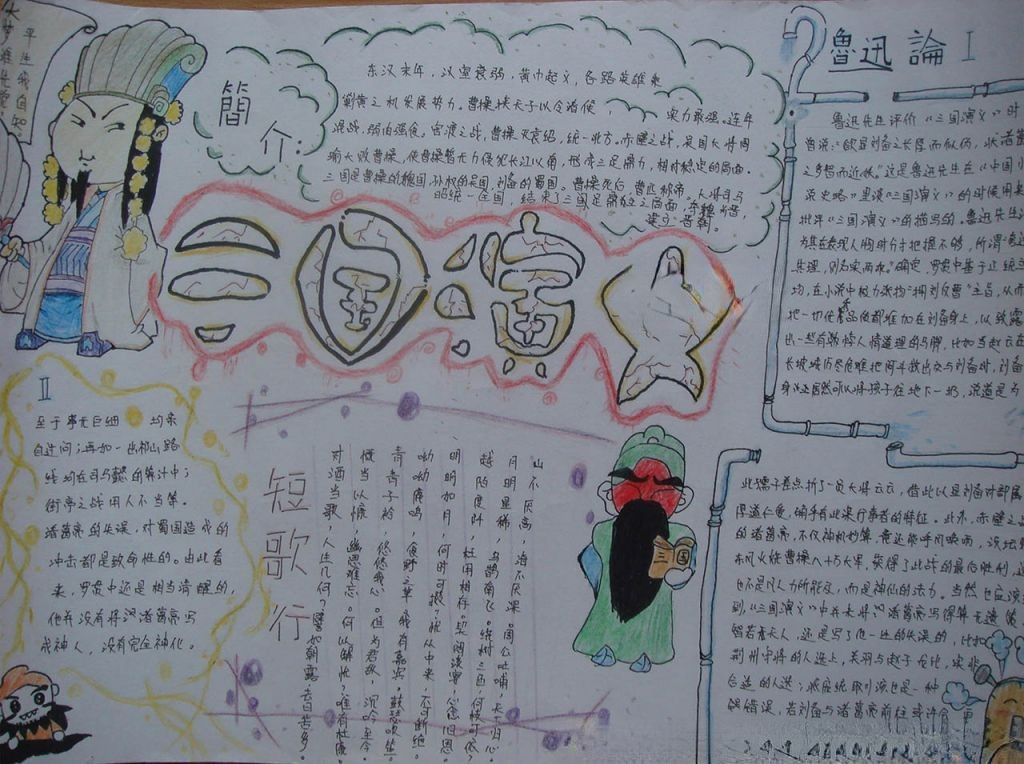 大梦谁先觉
平生我自知
簡介:
东汉末年，汉室衰弱，黄巾起义，各路英雄乘
剿黄之机发展势力。曹操挟天子以令诸侯，实力最强。连年
混战，弱肉强食。官渡之战，曹操灭袁绍，统一北方。赤壁之战，吴国大将周
瑜大败曹操，使曹操暂无力侵犯长江以南，形成三足鼎力，相对稳定的局面。
三国是曹操的魏国，孙权的吴国，刘备的蜀国。曹操死后，曹丕称帝，大将司马
昭统一全国，结束了三国足鼎立之局面，夺魏为晋，
建立晋朝。
三国演义
魯迅論 I
鲁迅先生评价《三国演义》时
曾说：“欲显刘备之长厚而似伪，状诸
之多智而近妖。”这是鲁迅先生在《中国小
说史略》里谈《三国演义》的时候用来
批评《三国演义》的描写的。鲁迅先生认
为其在表现人物时分寸把握不够，所谓“意近
其理，则为实而我。”确定，罗贯中基于正统主
均，在小说中极力张扬“拥刘反曹”主旨，从而
把一切优青品德都堆加在刘备身上，以致露
出一些有教悖人情道理的马脚，比如当赵云在
长坂坡历尽危难把阿斗救出交与刘备时，刘备
身为父居然可以将孩子在地下一扔，说道是为
II
至于事无巨细 均亲
自过问；再如一出祁山路
线均在司马懿的算计中；
街亭之战用人不当等。
诸葛亮的失误，对蜀国造成的
冲击都是致命性的。由此看
来，罗贯中还是相当清醒的，
他并没有将诸葛亮写
成神人，没有完全神化。
短歌行
对酒当歌，人生几何？譬如朝露，去日苦多。
慨当以慷，幽思难忘。何以解忧，唯有杜康。
青青子衿，悠悠我心。但为君故，沉吟至今。
呦呦鹿鸣，食野之苹。我有嘉宾，鼓瑟吹笙。
明明如月，何时可掇？忧从中来，不可断绝。
越陌度阡，枉用相存。契阔谈讌，心念旧恩。
月明星稀，乌鹊南飞。绕树三匝，何枝可依？
山不厌高，海不厌深。周公吐哺，天下归心。
三国
此孺子差点折了一员大将云云，借此以显刘备对部属
厚道仁爱，倒手有此渠行事者的特征。此外，赤壁之战
的诸葛亮，不仅神机妙算，竟还能呼风唤雨，设坛
东风火烧曹操八十万大军，获得了此战的最后胜利，这
也不是凡人力所能及，而是神仙的法力。当然也应该
到，《三国演义》中并未将诸葛亮写得算无遗
智若青天人，还是写了他一些的失误的，比如
荆州守将的人选上，关羽与赵子龙比，实非
合适的人选；
误错误，若刘备与诸葛亮前往